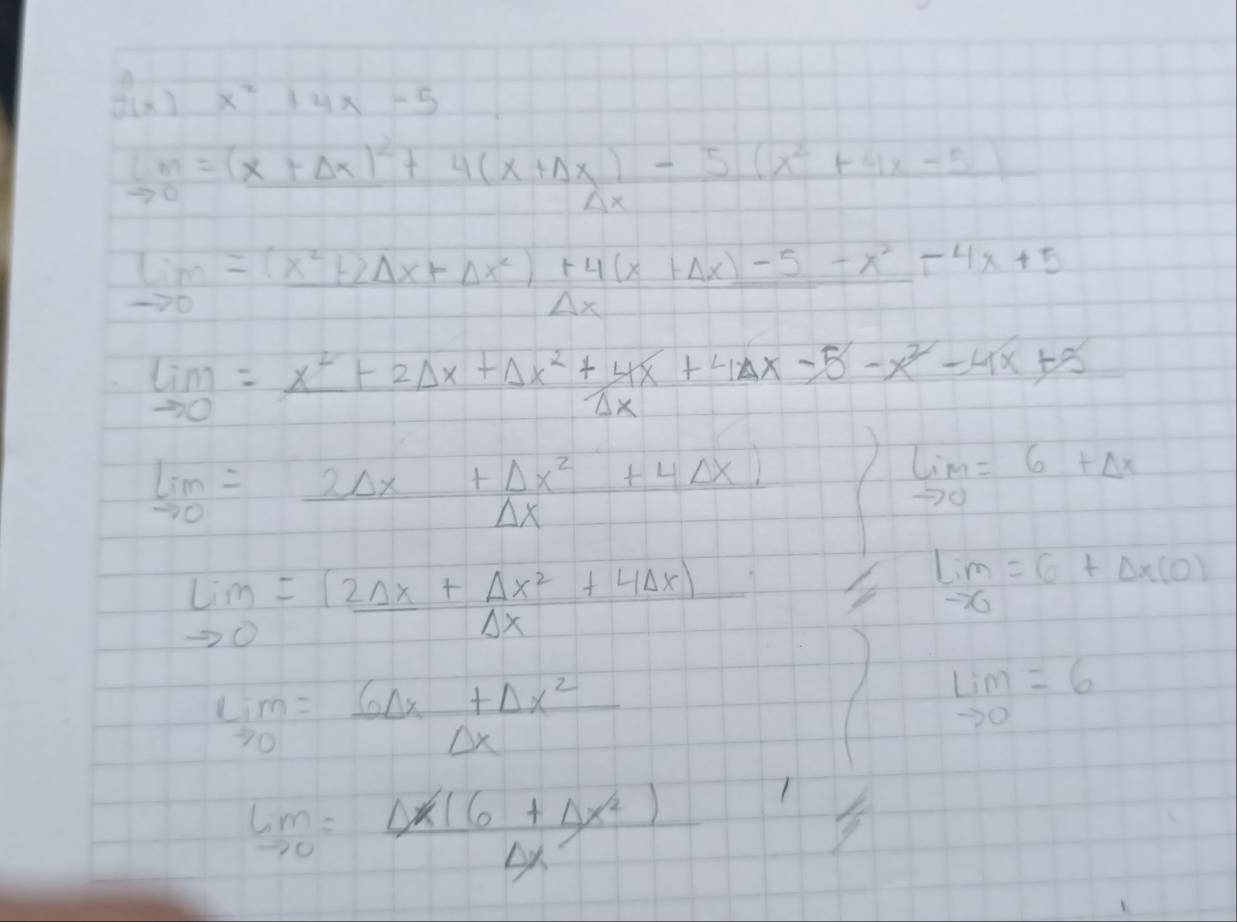 f(x) x² + 4x - 5
Lim = (x + Δx)² + 4(x + Δx) - 5 (x² + 4x - 5)
→0 Δx
Lim = (x² + 2Δx + Δx²) + 4(x + Δx) - 5 - x² - 4x + 5
→0 Δx
Lim = x² + 2Δx + Δx² + 4x + 4Δx - 5 - x² - 4x + 5
→0 Δx
Lim = 2Δx + Δx² + 4Δx)
→0 Δx
Lim = (2Δx + Δx² + 4Δx)
→0 Δx
Lim = 6Δx + Δx²
→0 Δx
Lim = Δx(6 + Δx²)
→0 Δx
Lim = 6 + Δx
→0
Lim = 6 + Δx(0)
→0
Lim = 6
→0